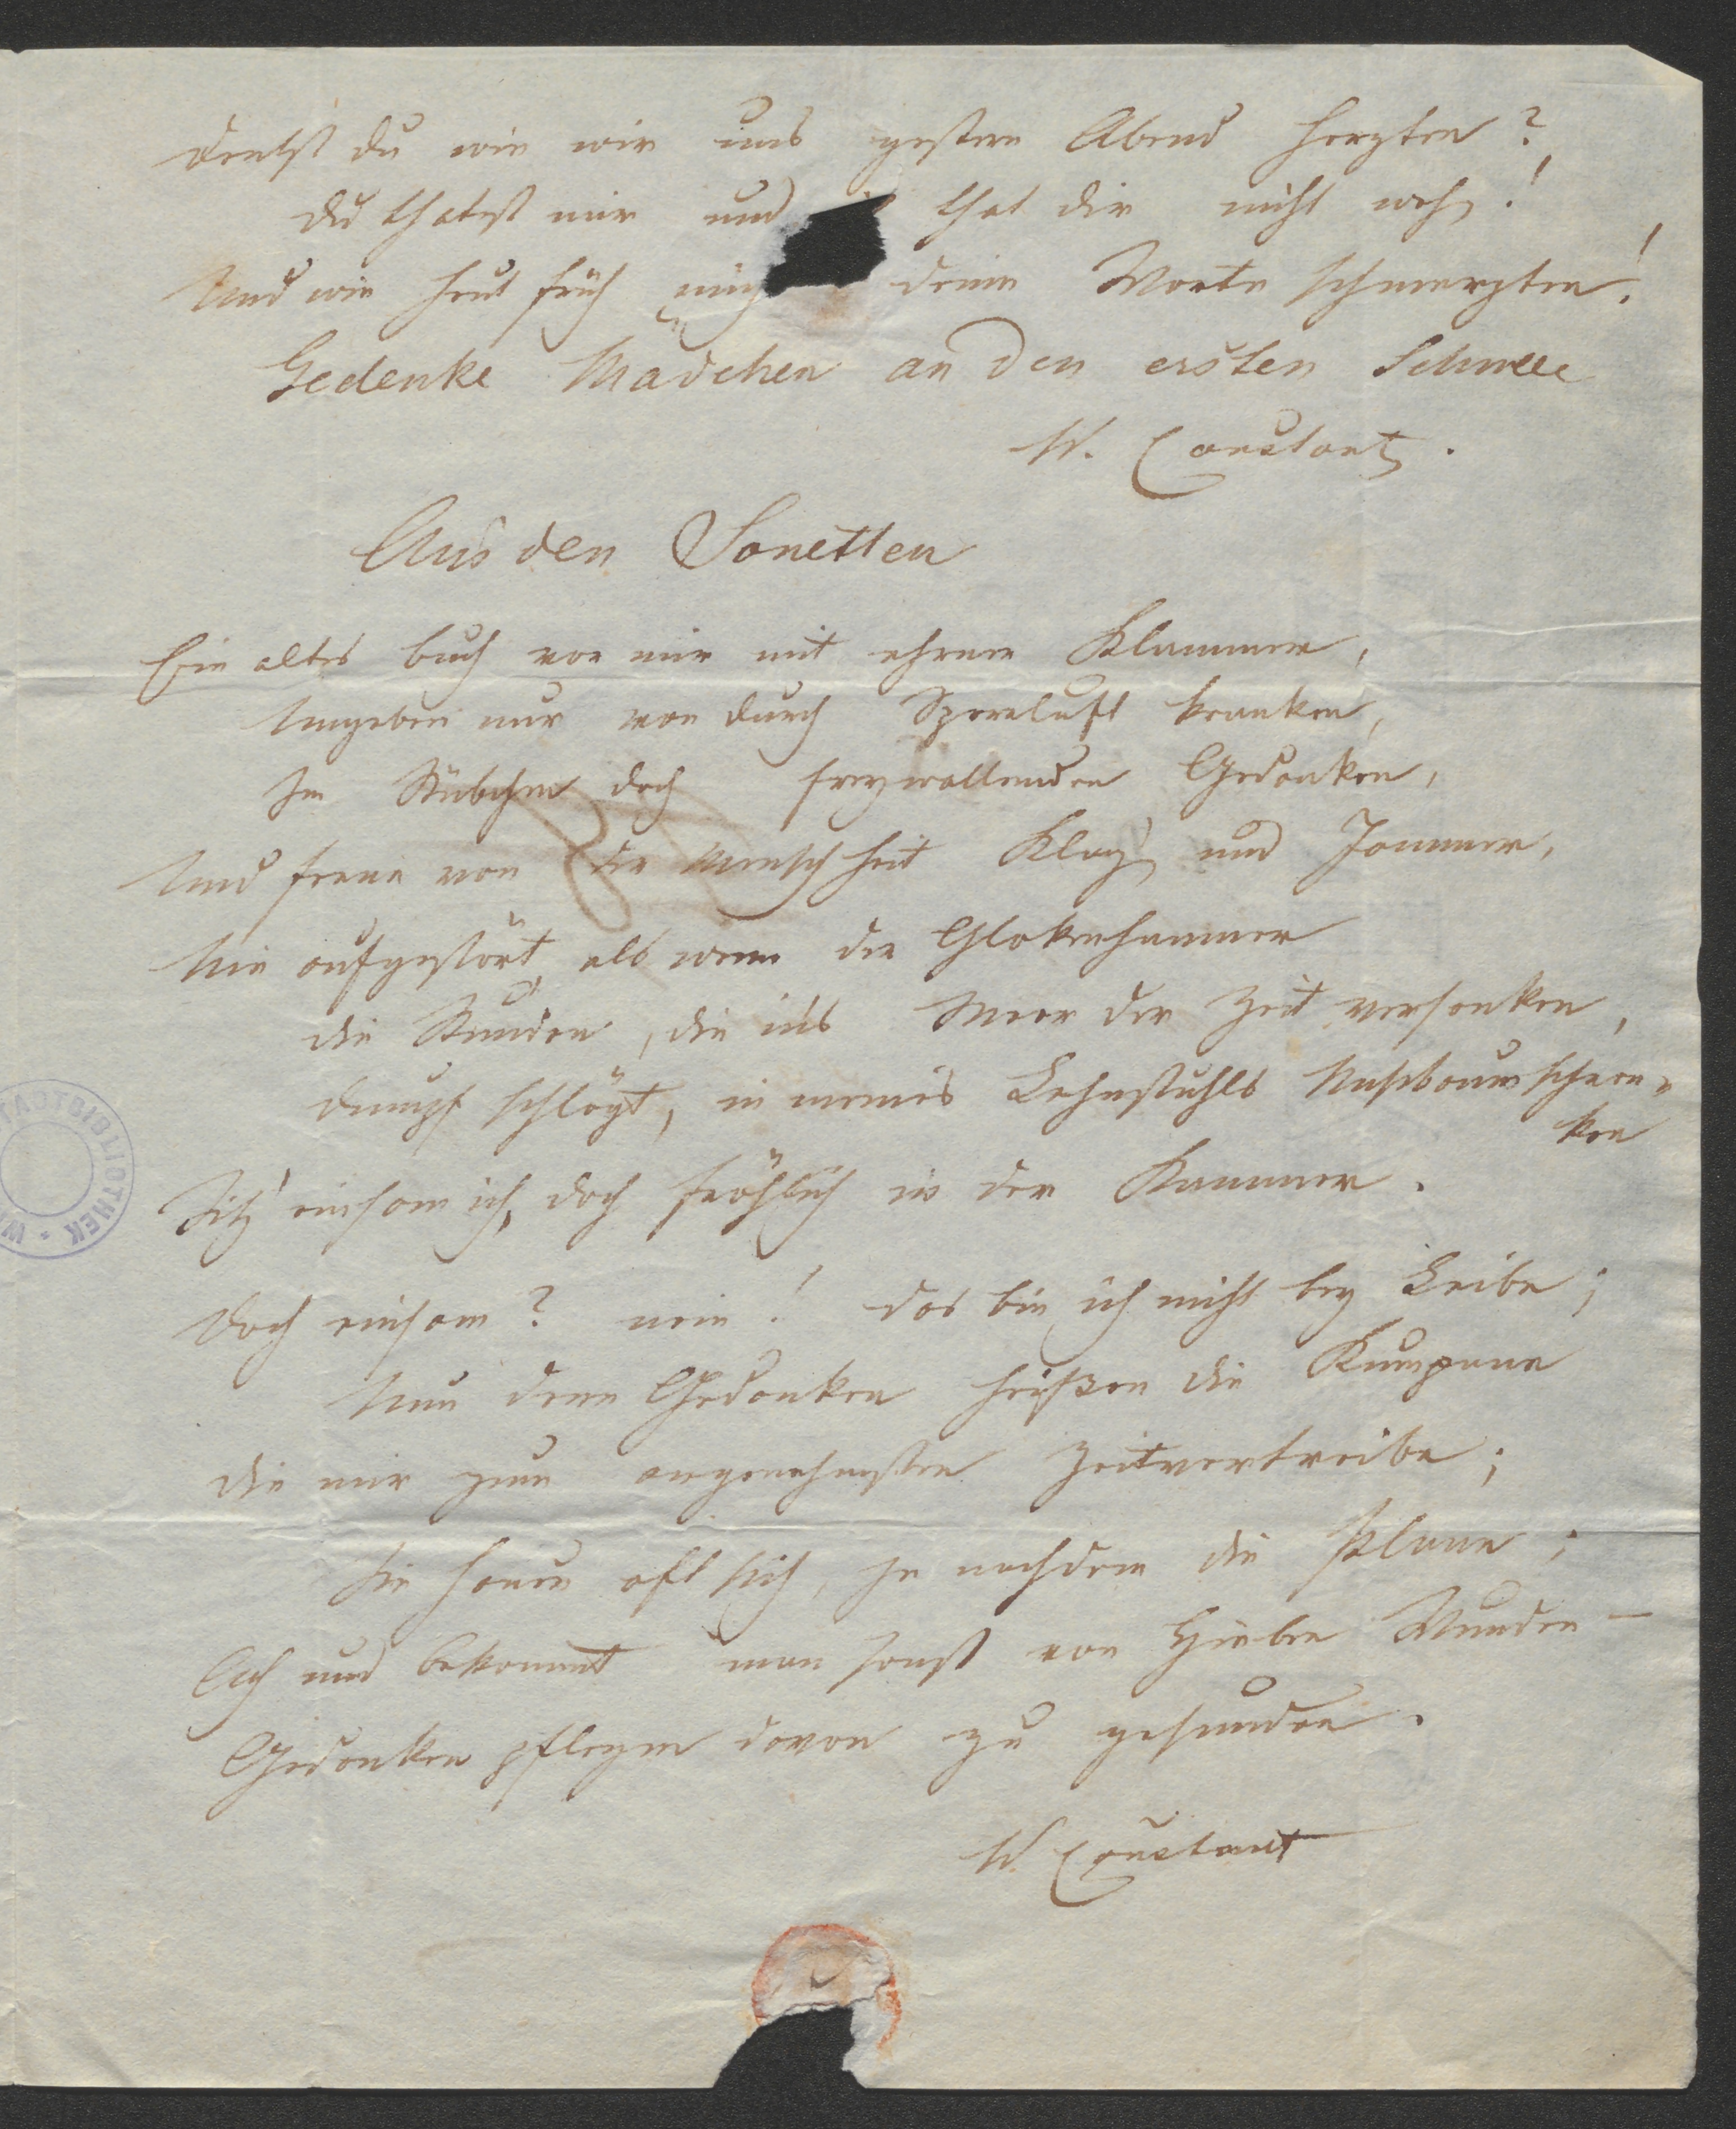 Denkst du wie wir uns gestern Abend herzten?
Du thatest mir und that dir nicht weh!
Und wie heut früh mich deine Worte schmerzten!
Gedenke Mädchen an den ersten Schnee
W. Constant.
Aus den Sonetten
Ein altes Buch vor mir mit ehrner Klammer,
Umgeben nur von durch Sperrluft kranken,
Im Stübchen doch freywallenden Gedanken,
Und ferne von der Menschheit Klag' und Jammer,
Nie aufgestört, als wenn der Glokenhammer
die Stunden, die in's Meer der Zeit versanken,
dumpf schlägt, in meines Lehnstuhls Nußbaumschran-
ken
Sitz' einsam ich, doch fröhlich in der Kammer.
Doch einsam? nein! das bin ich nicht bey Leibe;
Nun denn Gedanken heißen die Kumpane
die mir zum angenehmsten Zeitvertreibe;
Sie hauen oft sich, je nachdem die Plane;
Ach und bekommt man sonst von Hieben Wunden –
Gedanken pflegen davon zu gesunden.
W. Constant
STADTBIBLIOTHEK